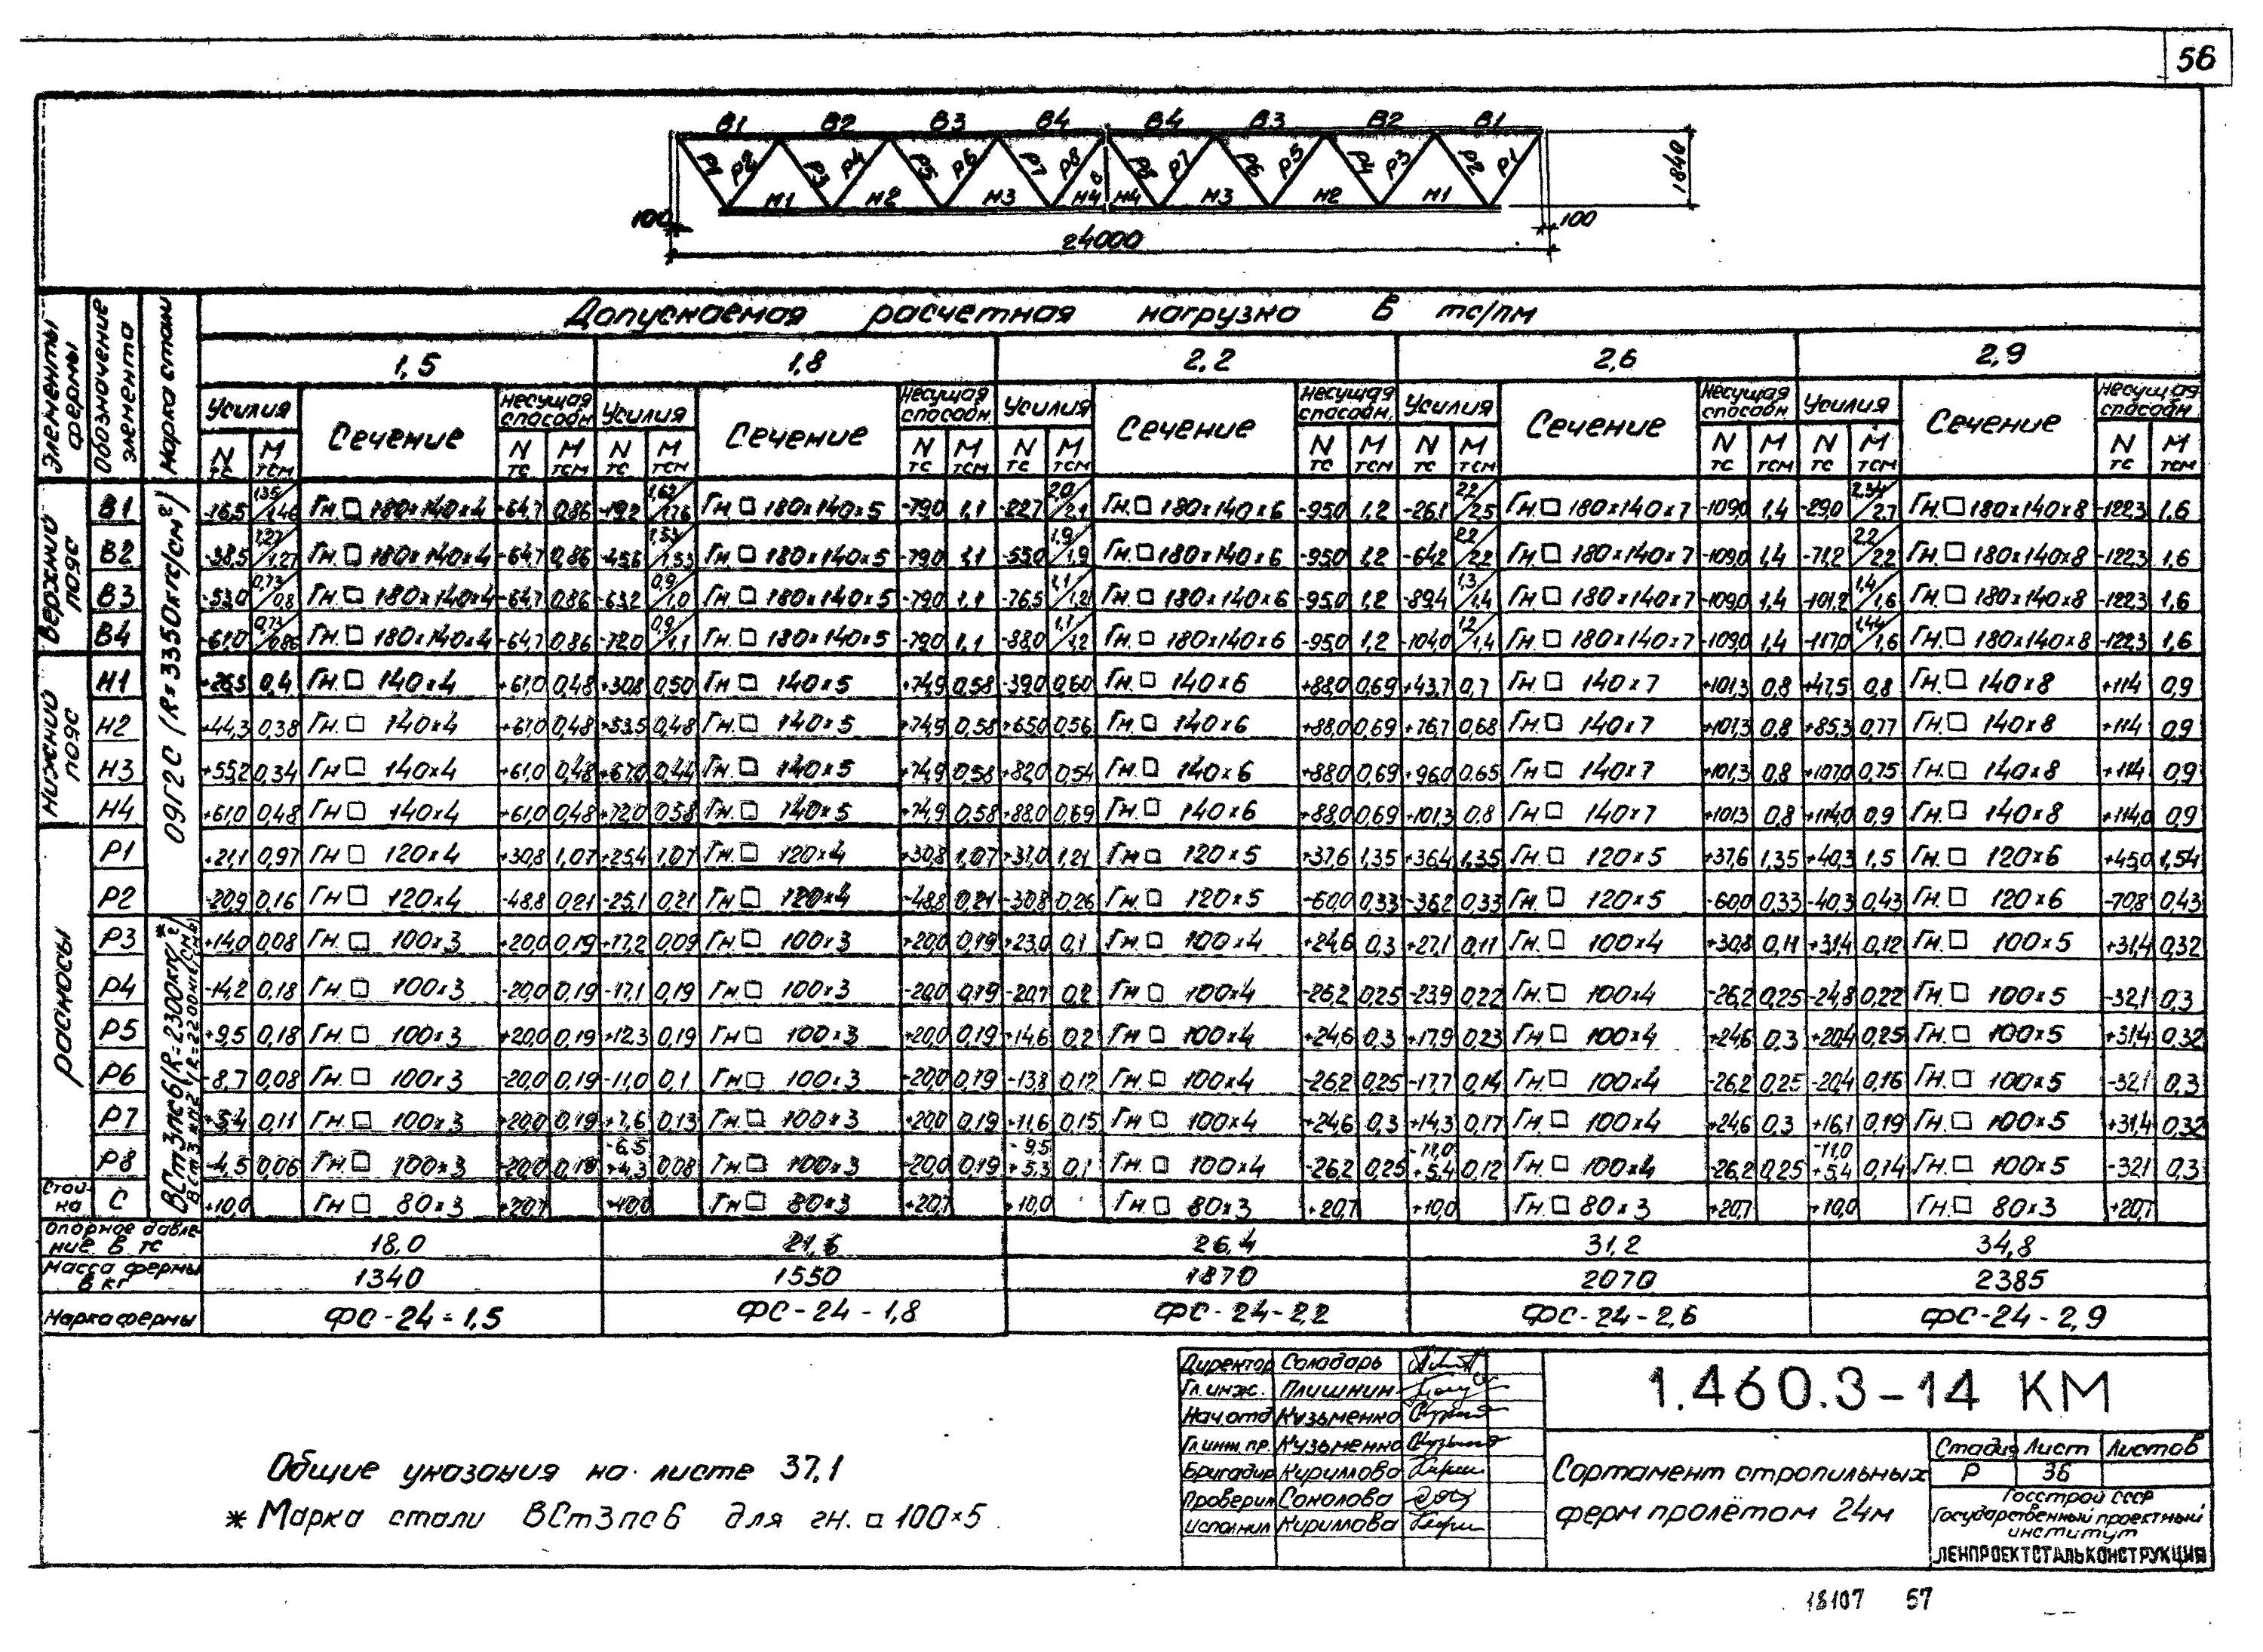 56
В1 В2 В3 В4 В4 В3 В2 В1
Р1 Р2 Р3 Р4 Р5 Р6 Р7 Р8 С Р8 Р7 Р6 Р5 Р4 Р3 Р2 Р1
Н1 Н2 Н3 Н4 Н4 Н3 Н2 Н1
1840
100 24000 100
Элементы фермы
Обозначение элемента
Марка стали
Допускаемая расчетная нагрузка в тс/пм
1,5 1,8 2,2 2,6 2,9
Усилия Сечение Несущая способн. Усилия Сечение Несущая способн. Усилия Сечение Несущая способн. Усилия Сечение Несущая способн. Усилия Сечение Несущая способн.
N тс М тсм N тс М тсм N тс М тсм N тс М тсм N тс М тсм N тс М тсм N тс М тсм N тс М тсм N тс М тсм N тс М тсм
Верхний пояс
09Г2С (R=3350кгс/см²)
В1 -16,5 1,35/1,46 Гн.□ 180×140×4 -64,7 0,86 -19,2 1,62/1,76 Гн.□ 180×140×5 -79,0 1,1 -22,7 2,0/2,1 Гн.□ 180×140×6 -95,0 1,2 -26,1 2,2/2,5 Гн.□ 180×140×7 -109,0 1,4 -29,0 2,34/2,7 Гн.□ 180×140×8 -122,3 1,6
В2 -38,5 1,27/1,27 Гн.□ 180×140×4 -64,7 0,86 -45,6 1,53/1,53 Гн.□ 180×140×5 -79,0 1,1 -55,0 1,9/1,9 Гн.□ 180×140×6 -95,0 1,2 -64,2 2,2/2,2 Гн.□ 180×140×7 -109,0 1,4 -71,2 2,2/2,2 Гн.□ 180×140×8 -122,3 1,6
В3 -53,0 0,73/0,8 Гн.□ 180×140×4 -64,7 0,86 -63,2 0,9/1,0 Гн.□ 180×140×5 -79,0 1,1 -76,5 1,1/1,2 Гн.□ 180×140×6 -95,0 1,2 -89,4 1,3/1,4 Гн.□ 180×140×7 -109,0 1,4 -101,2 1,4/1,6 Гн.□ 180×140×8 -122,3 1,6
В4 -61,0 0,73/0,86 Гн.□ 180×140×4 -64,7 0,86 -72,0 0,9/1,1 Гн.□ 180×140×5 -79,0 1,1 -88,0 1,1/1,2 Гн.□ 180×140×6 -95,0 1,2 -104,0 1,2/1,4 Гн.□ 180×140×7 -109,0 1,4 -117,0 1,44/1,6 Гн.□ 180×140×8 -122,3 1,6
Нижний пояс
Н1 +26,5 0,4 Гн.□ 140×4 +61,0 0,48 +30,8 0,50 Гн.□ 140×5 +74,9 0,58 -39,0 0,60 Гн.□ 140×6 +88,0 0,69 +43,7 0,7 Гн.□ 140×7 +101,3 0,8 +47,5 0,8 Гн.□ 140×8 +114 0,9
Н2 +44,3 0,38 Гн.□ 140×4 +61,0 0,48 +53,5 0,48 Гн.□ 140×5 +74,9 0,58 +65,0 0,56 Гн.□ 140×6 +88,0 0,69 +76,7 0,68 Гн.□ 140×7 +101,3 0,8 +85,3 0,77 Гн.□ 140×8 +114 0,9
Н3 +55,2 0,34 Гн□ 140×4 +61,0 0,48 +67,0 0,44 Гн.□ 140×5 +74,9 0,58 +82,0 0,54 Гн.□ 140×6 +88,0 0,69 +96,0 0,65 Гн□ 140×7 +101,3 0,8 +107,0 0,75 Гн.□ 140×8 +114 0,9
Н4 +61,0 0,48 Гн□ 140×4 +61,0 0,48 +72,0 0,58 Гн.□ 140×5 +74,9 0,58 +88,0 0,69 Гн.□ 140×6 +88,0 0,69 +101,3 0,8 Гн□ 140×7 +101,3 0,8 +114,0 0,9 Гн.□ 140×8 +114,0 0,9
Раскосы
Р1 +21,1 0,97 Гн□ 120×4 +30,8 1,07 +25,4 1,07 Гн.□ 120×4 +30,8 1,07 +31,0 1,21 Гн□ 120×5 +37,6 1,35 +36,4 1,35 Гн□ 120×5 +37,6 1,35 +40,3 1,5 Гн.□ 120×6 +45,0 1,54
Р2 -20,9 0,16 Гн□ 120×4 -48,8 0,21 -25,1 0,21 Гн□ 120×4 -48,8 0,21 -30,8 0,26 Гн.□ 120×5 -60,0 0,33 -36,2 0,33 Гн□ 120×5 -60,0 0,33 -40,3 0,43 Гн.□ 120×6 -70,8 0,43
ВСт3пс6 (R=2300кгс/см²)*
Р3 +14,0 0,08 Гн.□ 100×3 +20,0 0,19 +17,2 0,09 Гн□ 100×3 +20,0 0,19 +23,0 0,1 Гн.□ 100×4 +24,6 0,3 +27,1 0,11 Гн□ 100×4 +30,8 0,11 +31,4 0,12 Гн.□ 100×5 +31,4 0,32
Р4 -14,2 0,18 Гн.□ 100×3 -20,0 0,19 -17,1 0,19 Гн□ 100×3 -20,0 0,19 -20,7 0,2 Гн□ 100×4 -26,2 0,25 -23,9 0,22 Гн.□ 100×4 -26,2 0,25 -24,8 0,22 Гн.□ 100×5 -32,1 0,3
Р5 +9,5 0,18 Гн.□ 100×3 +20,0 0,19 +12,3 0,19 Гн□ 100×3 +20,0 0,19 +14,6 0,2 Гн□ 100×4 +24,6 0,3 +17,9 0,23 Гн.□ 100×4 +24,6 0,3 +20,4 0,25 Гн.□ 100×5 +31,4 0,32
Р6 -8,7 0,08 Гн.□ 100×3 -20,0 0,19 -11,0 0,1 Гн□ 100×3 -20,0 0,19 -13,8 0,12 Гн.□ 100×4 -26,2 0,25 -17,7 0,14 Гн.□ 100×4 -26,2 0,25 -20,4 0,16 Гн.□ 100×5 -32,1 0,3
Р7 +5,4 0,11 Гн□ 100×3 +20,0 0,19 +7,6 0,13 Гн□ 100×3 +20,0 0,19 +11,6 0,15 Гн□ 100×4 +24,6 0,3 +14,3 0,17 Гн.□ 100×4 +24,6 0,3 +16,1 0,19 Гн.□ 100×5 +31,4 0,32
Р8 -4,5 0,06 Гн.□ 100×3 -20,0 0,19 -6,5 +4,3 0,08 Гн.□ 100×3 -20,0 0,19 -9,5 +5,3 0,1 Гн.□ 100×4 -26,2 0,25 -11,0 +5,4 0,12 Гн.□ 100×4 -26,2 0,25 -11,0 +5,4 0,14 Гн.□ 100×5 -32,1 0,3
Стойка С +10,0 Гн□ 80×3 +20,7 +10,0 Гн□ 80×3 +20,7 +10,0 Гн.□ 80×3 +20,7 +10,0 Гн.□ 80×3 +20,7 +10,0 Гн.□ 80×3 +20,7
Опорное давление в тс 18,0 21,6 26,4 31,2 34,8
Масса фермы в кг 1340 1550 1870 2070 2385
Марка фермы ФС-24-1,5 ФС-24-1,8 ФС-24-2,2 ФС-24-2,6 ФС-24-2,9
Общие указания на листе 37,1
* Марка стали ВСт3пс6 для гн.□ 100×5
Директор Соладарь
Гл.инж. Плишкин
Нач.отд Кузьменко
Гл.инж.пр. Кузьменко
Бригадир Кириллова
Проверил Соколова
Исполнил Кириллова
1.460.3-14 КМ
Сортамент стропильных
ферм пролётом 24м
Стадия Лист Листов
Р 36
Госстрой СССР
Государственный проектный
институт
ЛЕНПРОЕКТСТАЛЬКОНСТРУКЦИЯ
18107 57